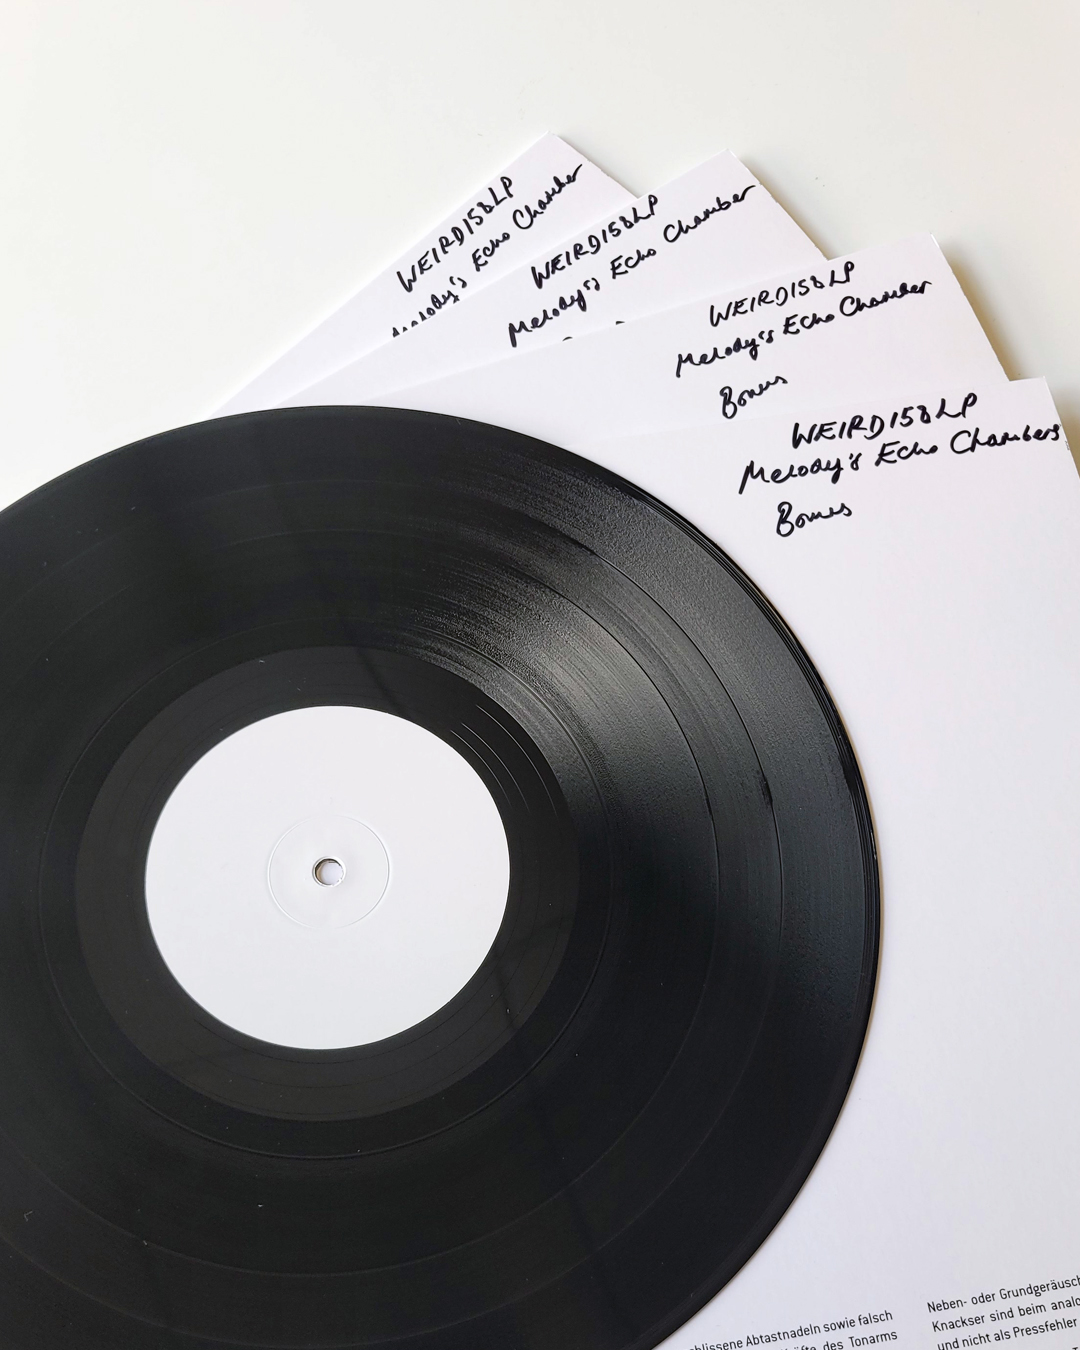 WEIRD158LP
Melody's Echo Chamber
WEIRD158LP
Melody's Echo Chamber
WEIRD158LP
Melody's Echo Chamber
Bonus
WEIRD158LP
Melody's Echo Chambers
Bonus
Abtastnadeln sowie falsch
des Tonarms
Neben- oder Grundgeräusch
Knackser sind beim
und nicht als Pressfehler